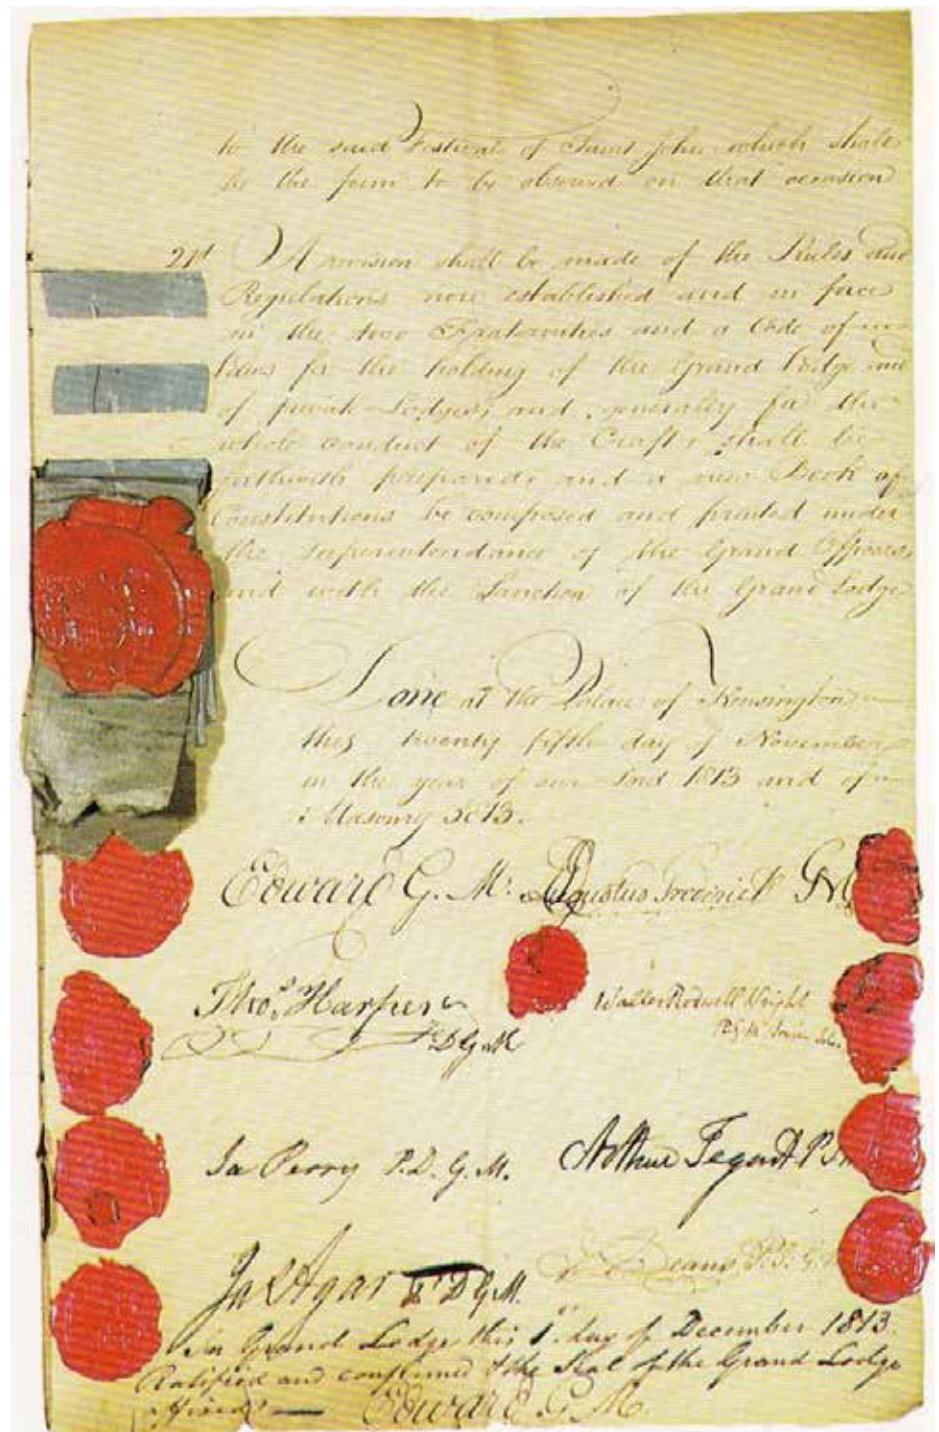 to the said Festivals of Saint John which shall
be the form to be observed on that occasion
21st A revision shall be made of the Rules and
Regulations now established and in force
in the two Fraternities and a Code of
for the holding of the Grand Lodge and
of private Lodges, and, generally for the
whole conduct of the Craft, shall be
forthwith prepared and a new Book of
Constitutions be composed and printed under
the Superintendance of the Grand Officers
and with the Sanction of the Grand Lodge
Done at the Palace of Kensington
this twenty fifth day of November
in the year of our Lord 1813 and of
Masonry 5813.
Edward G. M. Augustus Frederick GM
Thos. Harper Walter Rodwell Wright
DGM
Ja Perry P. D. G. M. Arthur Tegart P
Ja Agar P D G M. J Deans P. J. G
In Grand Lodge this 1st day of December 1813.
Ratified and confirmed & the Seal of the Grand Lodge
affixed — Edward G. M.